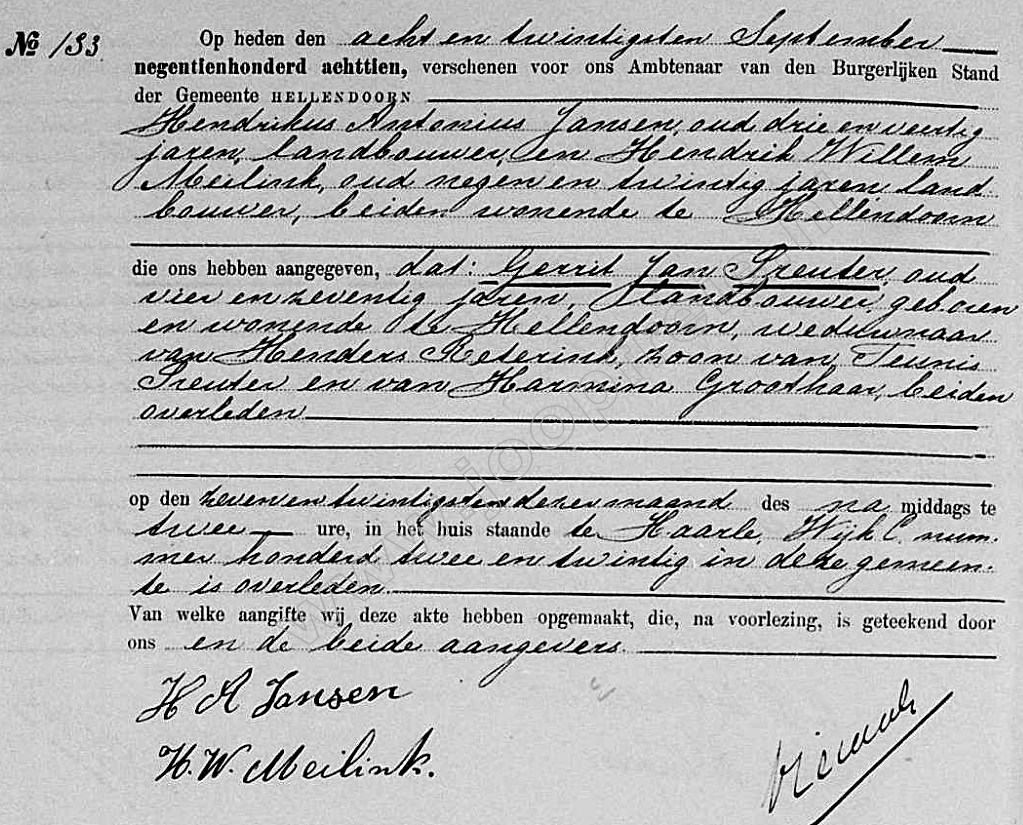 No 133
Op heden den acht en twintigsten September
negentienhonderd achttien, verschenen voor ons Ambtenaar van den Burgerlijken Stand
der Gemeente HELLENDOORN
Hendrikus Antonius Jansen, oud drie en veertig
jaren, landbouwer, en Hendrik Willem
Meilink, oud negen en twintig jaren land
bouwer, beiden wonende te Hellendoorn
die ons hebben aangegeven, dat: Gerrit Jan Preuter, oud
vier en zeventig jaren, landbouwer, geboren
en wonende te Hellendoorn, weduwnaar
van Henders Reterink, zoon van Teunis
Preuter en van Harmina Groothaar, beiden
overleden
op den zeven en twintigsten dezer maand des na middags te
twee ure, in het huis staande te Haarle, Wijk C. num-
mer honderd twee en twintig in deze gemeen-
te is overleden.
Van welke aangifte wij deze akte hebben opgemaakt, die, na voorlezing, is geteekend door
ons en de beide aangevers.
H A Jansen
H. W. Meilink.